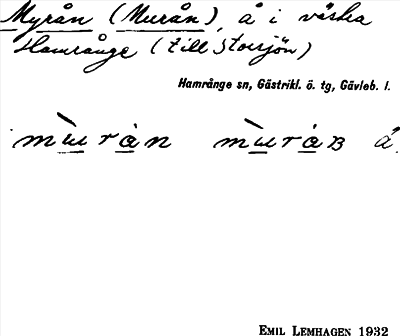 Myrån (Murån), å i västra
Hamrånge (till Storsjön)
Hamrånge sn, Gästrikl. ö. tg, Gävleb. l.
å
EMIL LEMHAGEN 1932